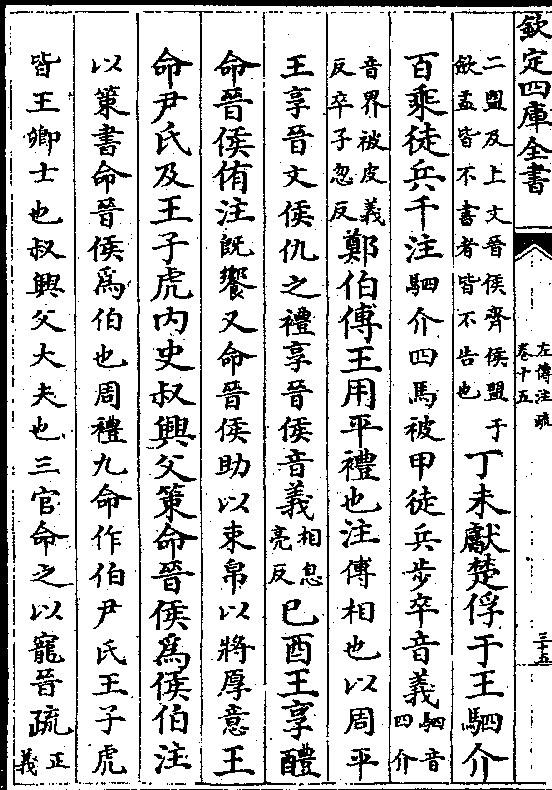 欽定四庫全書
左傳注疏
卷十五
三十五
二盟及上文晉侯齊侯盟于
歛盂皆不書者皆不告也
丁未獻楚俘于王駟介
百乘徒兵千注駟介四馬被甲徒兵步卒音義
駟音
四介
音界被皮義
反卒子忽反
鄭伯傅王用平禮也注傅相也以周平
王享晉文侯仇之禮享晉侯音義
相息
亮反
己酉王享醴
命晉侯侑注既饗又命晉侯助以束帛以將厚意王
命尹氏及王子虎内史叔興父策命晉侯爲侯伯注
以策書命晉侯爲伯也周禮九命作伯尹氏王子虎
皆王卿士也叔興父大夫也三官命之以寵晉疏
正
義